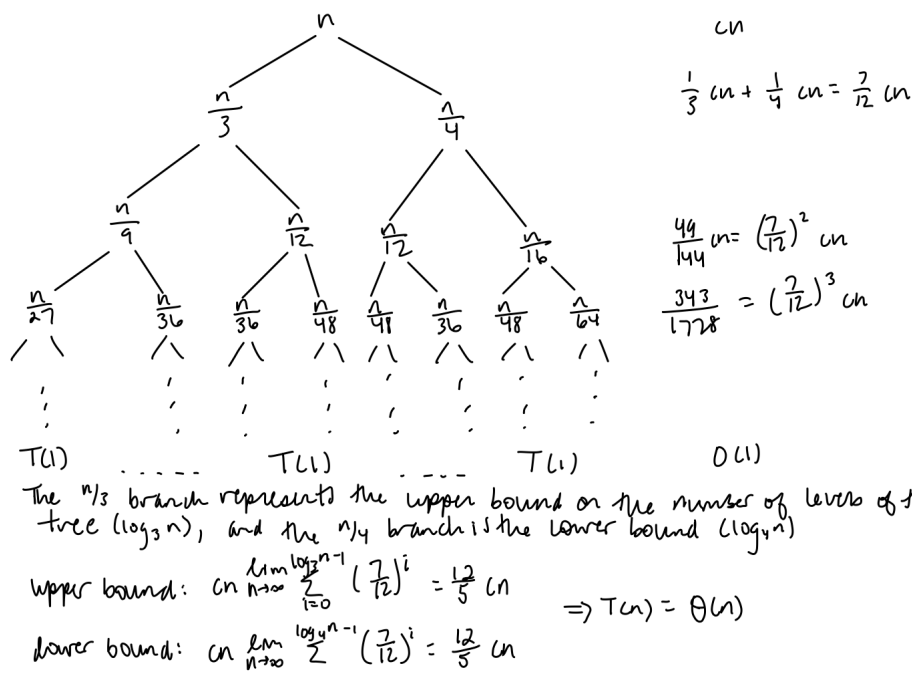 n
cn
n/3 n/4
1/3 cn + 1/4 cn = 7/12 cn
n/9 n/12 n/12 n/16
49/144 cn = (7/12)^2 cn
n/27 n/36 n/36 n/48 n/48 n/36 n/48 n/64
343/1728 = (7/12)^3 cn
T(1) ..... T(1) .... T(1) O(1)
The n/3 branch represents the upper bound on the number of levels of
tree (log_3 n), and the n/4 branch is the lower bound (log_4 n)
upper bound: cn lim n→∞ Σ i=0 log_3 n-1 (7/12)^i = 12/5 cn
⇒ T(n) = Θ(n)
Lower bound: cn lim n→∞ Σ log_4 n-1 (7/12)^i = 12/5 cn